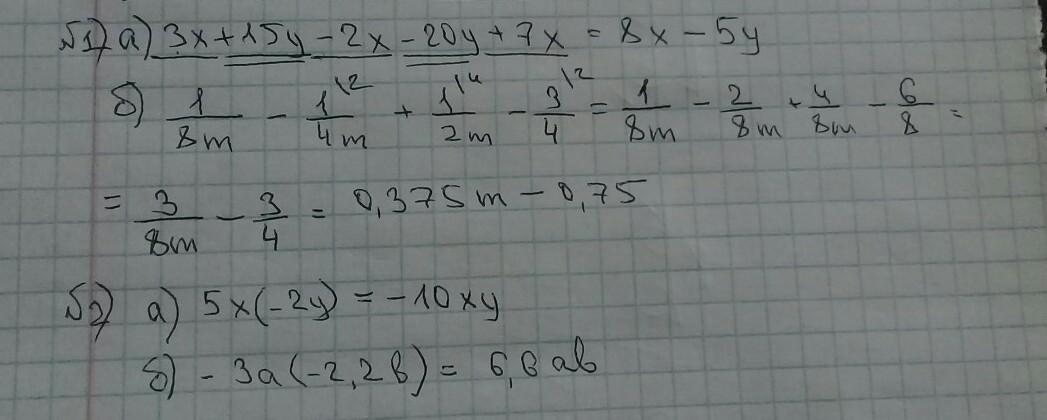 №1) а) 3x + 15y - 2x - 20y + 7x = 8x - 5y
б) 1/8m - 1/4m \2 + 1/2m \4 - 3/4 \2 = 1/8m - 2/8m + 4/8m - 6/8 =
= 3/8m - 3/4 = 0,375m - 0,75
№2) а) 5x(-2y) = -10xy
б) -3a(-2,2b) = 6,6ab